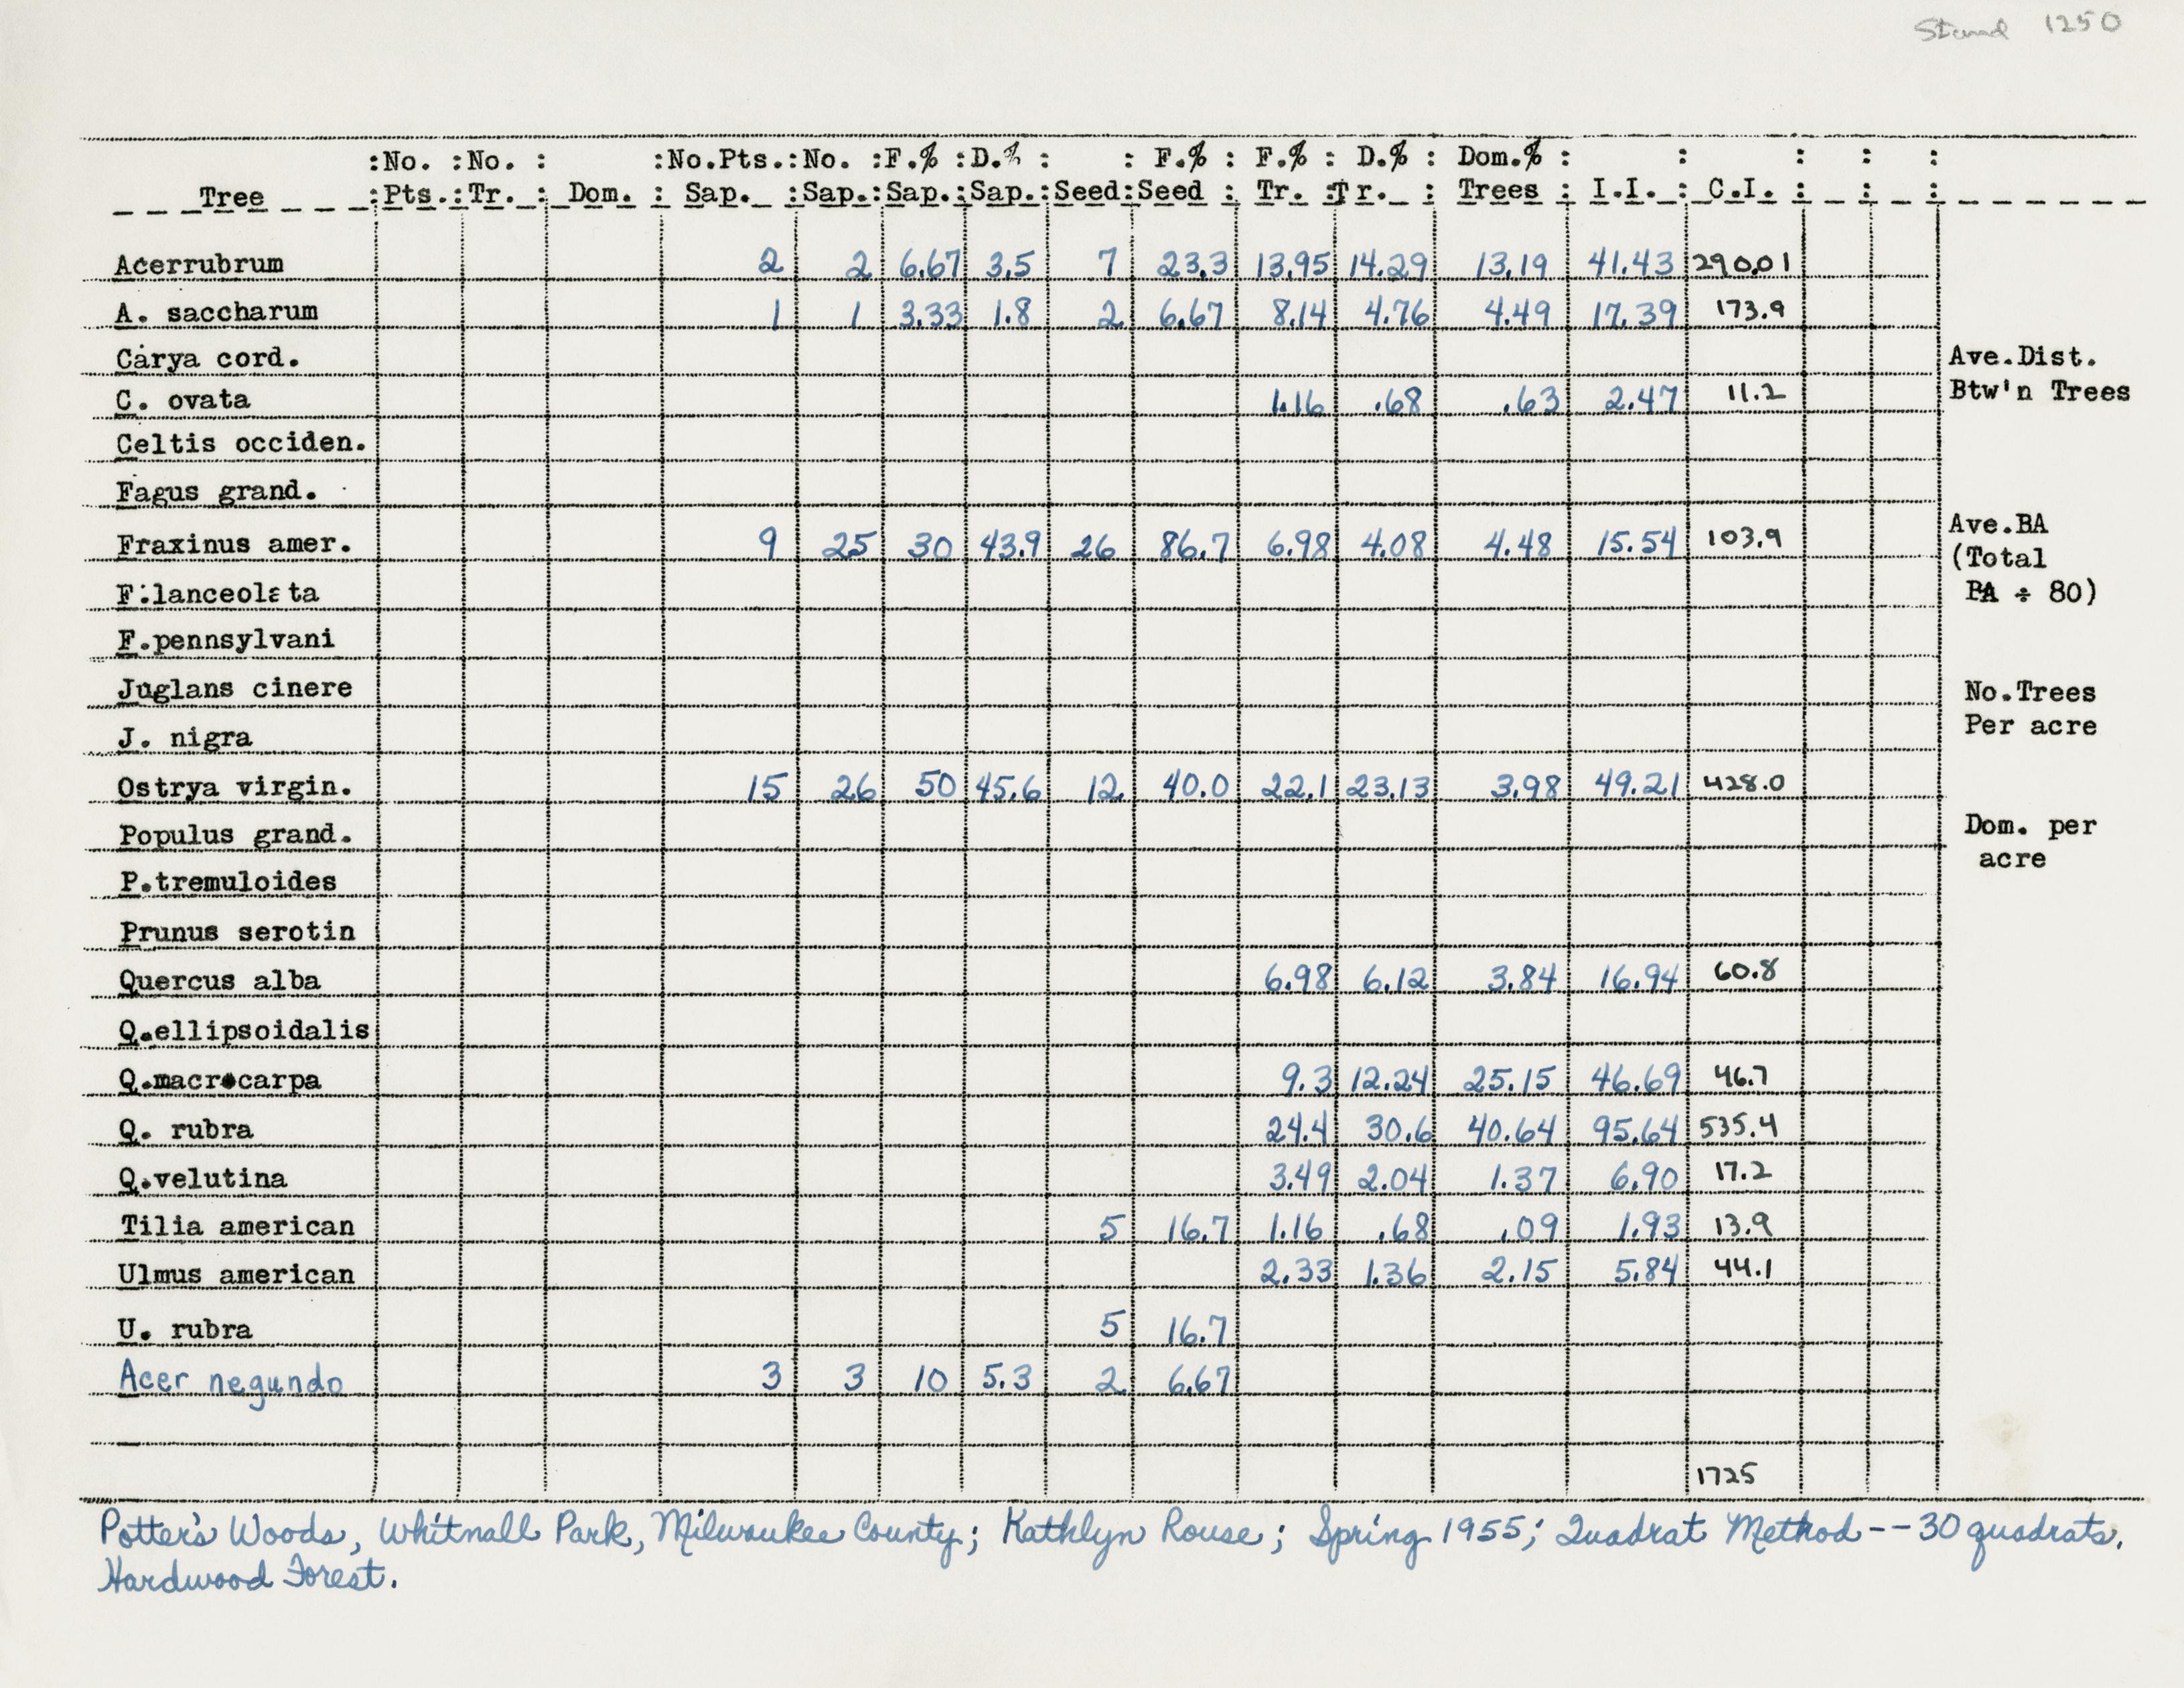 Stand 1250
:No. :No. : :No.Pts.:No. :F.% :D.% : : F.% : F.% : D.% : Dom.% : : : : :
Tree :Pts.:Tr. : Dom. : Sap. :Sap.:Sap.:Sap.:Seed:Seed : Tr. :Tr. : Trees : I.I. : C.I. : : :
Acerrubrum 2 2 6.67 3.5 7 23.3 13.95 14.29 13.19 41.43 290.01
A. saccharum 1 1 3.33 1.8 2 6.67 8.14 4.76 4.49 17.39 173.9
Carya cord.
Ave.Dist.
C. ovata 1.16 .68 .63 2.47 11.2
Btw'n Trees
Celtis occiden.
Fagus grand.
Ave.BA
Fraxinus amer. 9 25 30 43.9 26 86.7 6.98 4.08 4.48 15.54 103.9
(Total
F.lanceolata
BA ÷ 80)
F.pennsylvani
Juglans cinere
No.Trees
J. nigra
Per acre
Ostrya virgin. 15 26 50 45.6 12 40.0 22.1 23.13 3.98 49.21 428.0
Populus grand.
Dom. per
acre
P.tremuloides
Prunus serotin
Quercus alba 6.98 6.12 3.84 16.94 60.8
Q.ellipsoidalis
Q.macrocarpa 9.3 12.24 25.15 46.69 46.7
Q. rubra 24.4 30.6 40.64 95.64 535.4
Q.velutina 3.49 2.04 1.37 6.90 17.2
Tilia american 5 16.7 1.16 .68 .09 1.93 13.9
Ulmus american 2.33 1.36 2.15 5.84 44.1
U. rubra 5 16.7
Acer negundo 3 3 10 5.3 2 6.67
1725
Potter's Woods, Whitnall Park, Milwaukee County; Kathlyn Rouse; Spring 1955; Quadrat Method -- 30 quadrats.
Hardwood Forest.